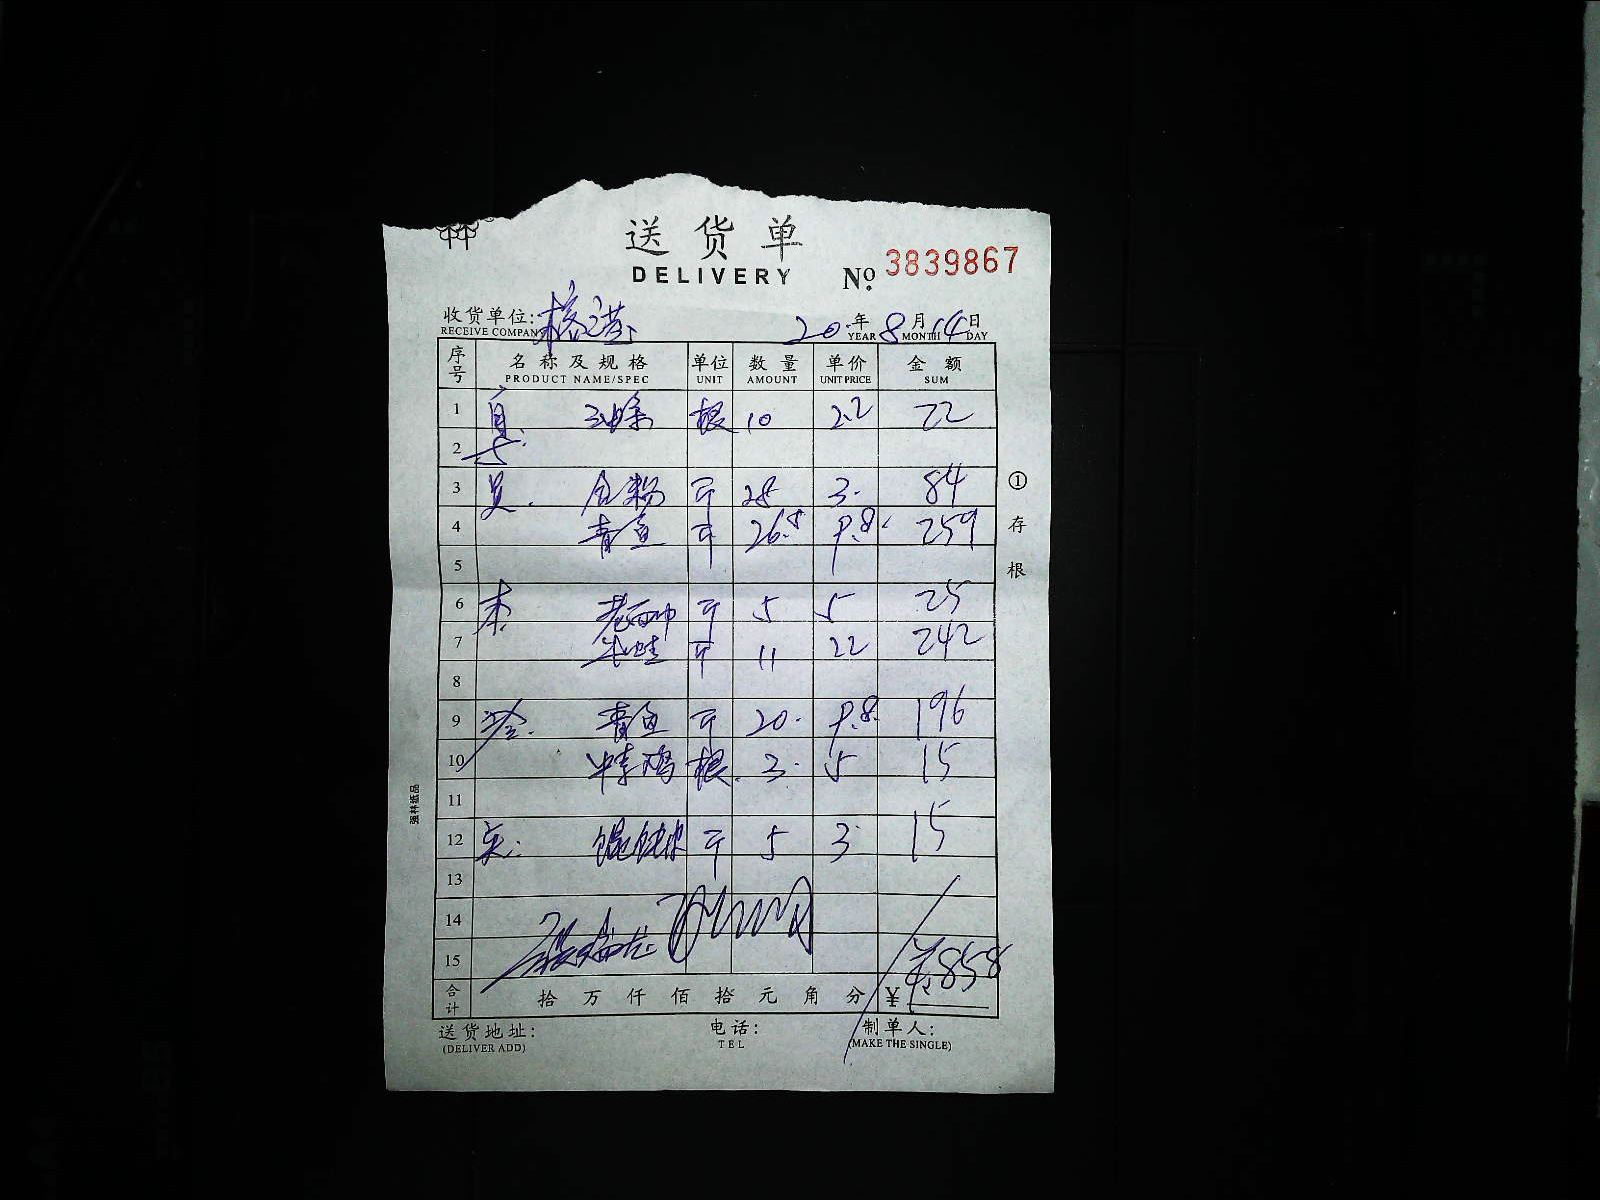 送货单
DELIVERY
No. 3839867
收货单位:
RECEIVE COMPANY
20 年 8 月 14 日
YEAR MONTH DAY
序号 名称及规格 单位 数量 单价 金额
PRODUCT NAME/SPEC UNIT AMOUNT UNIT PRICE SUM
1 油条 根 10 2.2 22
2
3 斤 28 3. 84
4 青鱼 斤 26.5 9.8 259
5
6 斤 5 5 25
7 牛蛙 斤 11 22 242
8
9 青鱼 斤 20. 9.8 196
10 根 3. 5 15
11
12 馄饨皮 斤 5 3 15
13
14
15
合计 拾 万 仟 佰 拾 元 角 分 ¥ 858
送货地址:
(DELIVER ADD)
电话:
TEL
制单人:
(MAKE THE SINGLE)
①存根
强林纸品